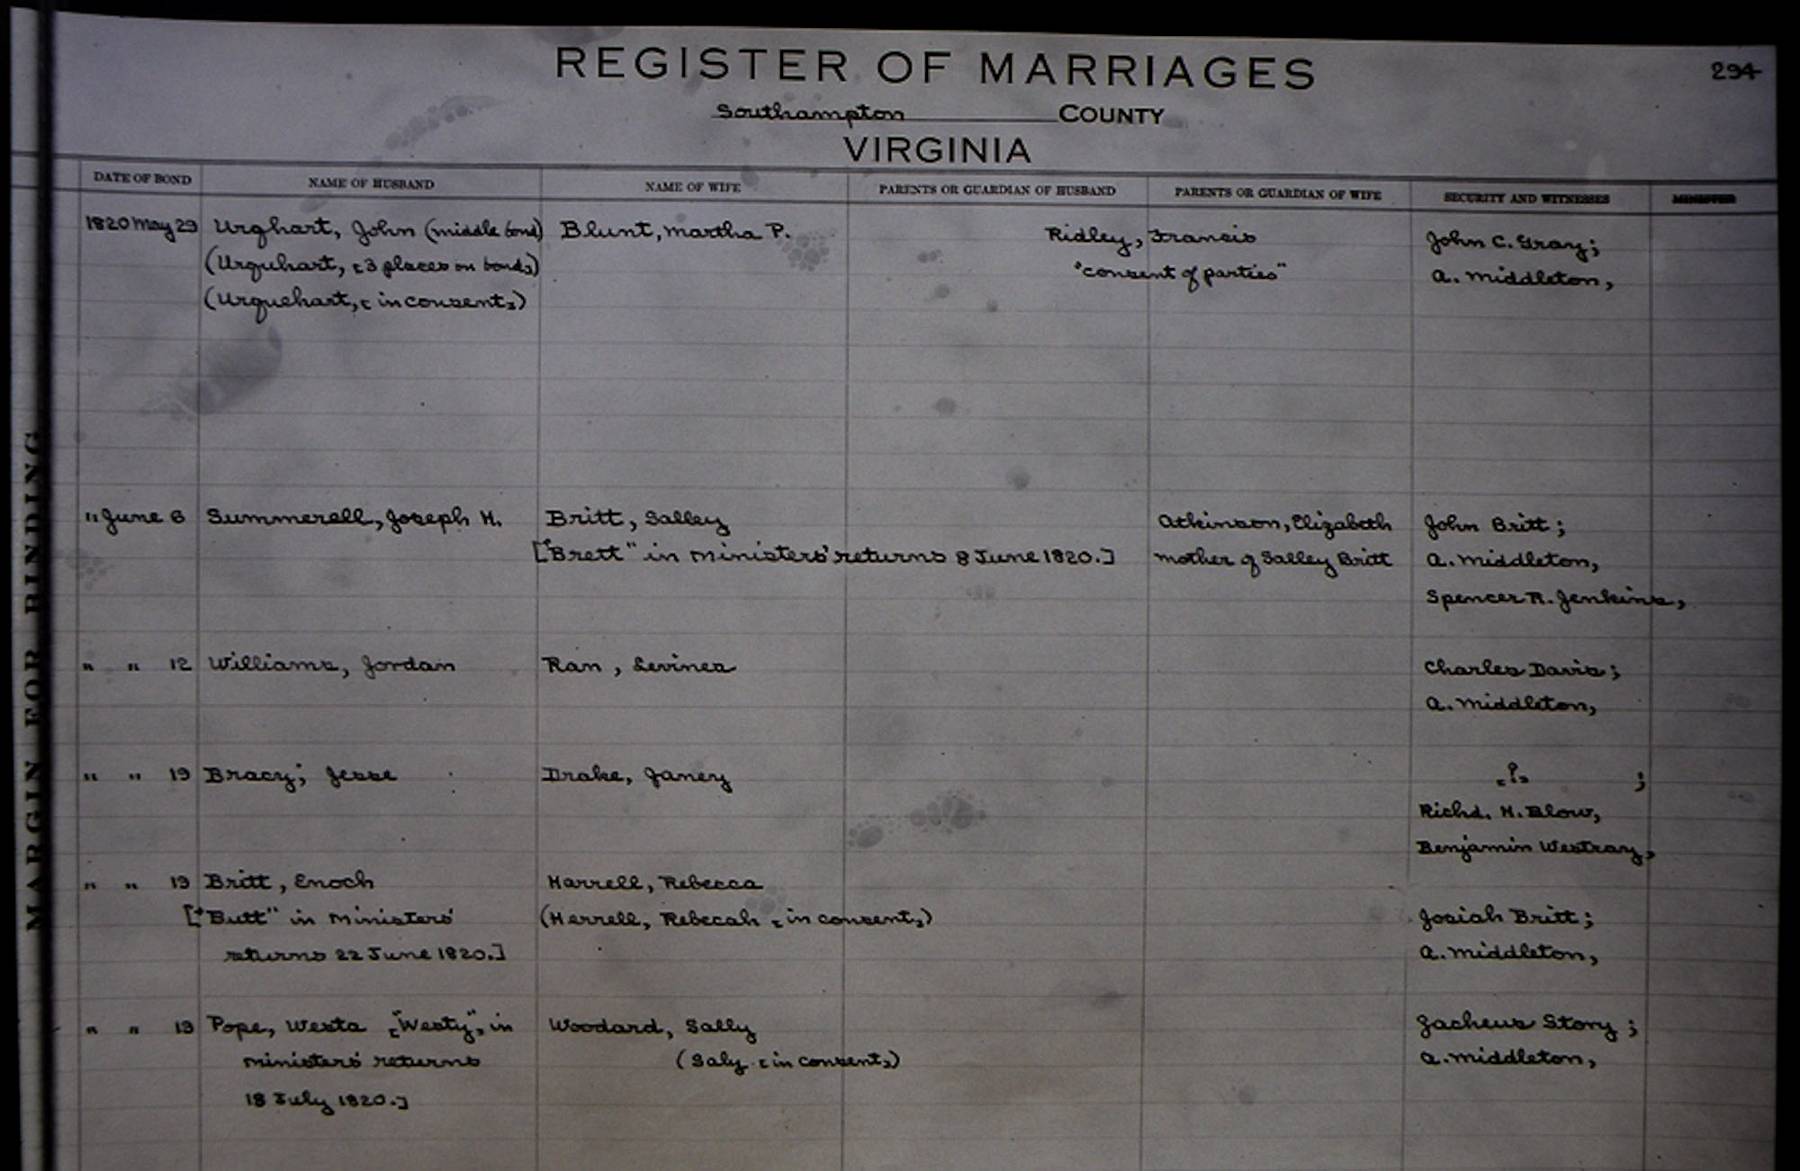 REGISTER OF MARRIAGES 294
Southampton COUNTY
VIRGINIA
MARGIN FOR BINDING
DATE OF BOND NAME OF HUSBAND NAME OF WIFE PARENTS OR GUARDIAN OF HUSBAND PARENTS OR GUARDIAN OF WIFE SECURITY AND WITNESSES MINISTER
1820 May 29 Urghart, John (middle bond) Blunt, Martha P. Ridley, Francis John C. Gray;
(Urquhart, [3 places on bond]) "consent of parties" A. Middleton,
(Urquehart, [in consent])
" June 6 Summerell, Joseph H. Britt, Salley Atkinson, Elizabeth John Britt;
["Brett" in ministers' returns 8 June 1820.] mother of Salley Britt A. Middleton,
Spencer R. Jenkins,
" " 12 Williams, Jordan Ran, Levinea Charles Davis;
A. Middleton,
" " 19 Bracy; Jesse Drake, Janey [?] ;
Richd. H. Blow,
Benjamin Westray,
" " 19 Britt, Enoch Harrell, Rebecca
["Butt" in ministers' (Herrell, Rebecah [in consent]) Josiah Britt;
returns 22 June 1820.] A. Middleton,
" " 19 Pope, Westa ["Westy", in Woodard, Sally Zacheus Story;
ministers' returns (Saly [in consent]) A. Middleton,
18 July 1820.]